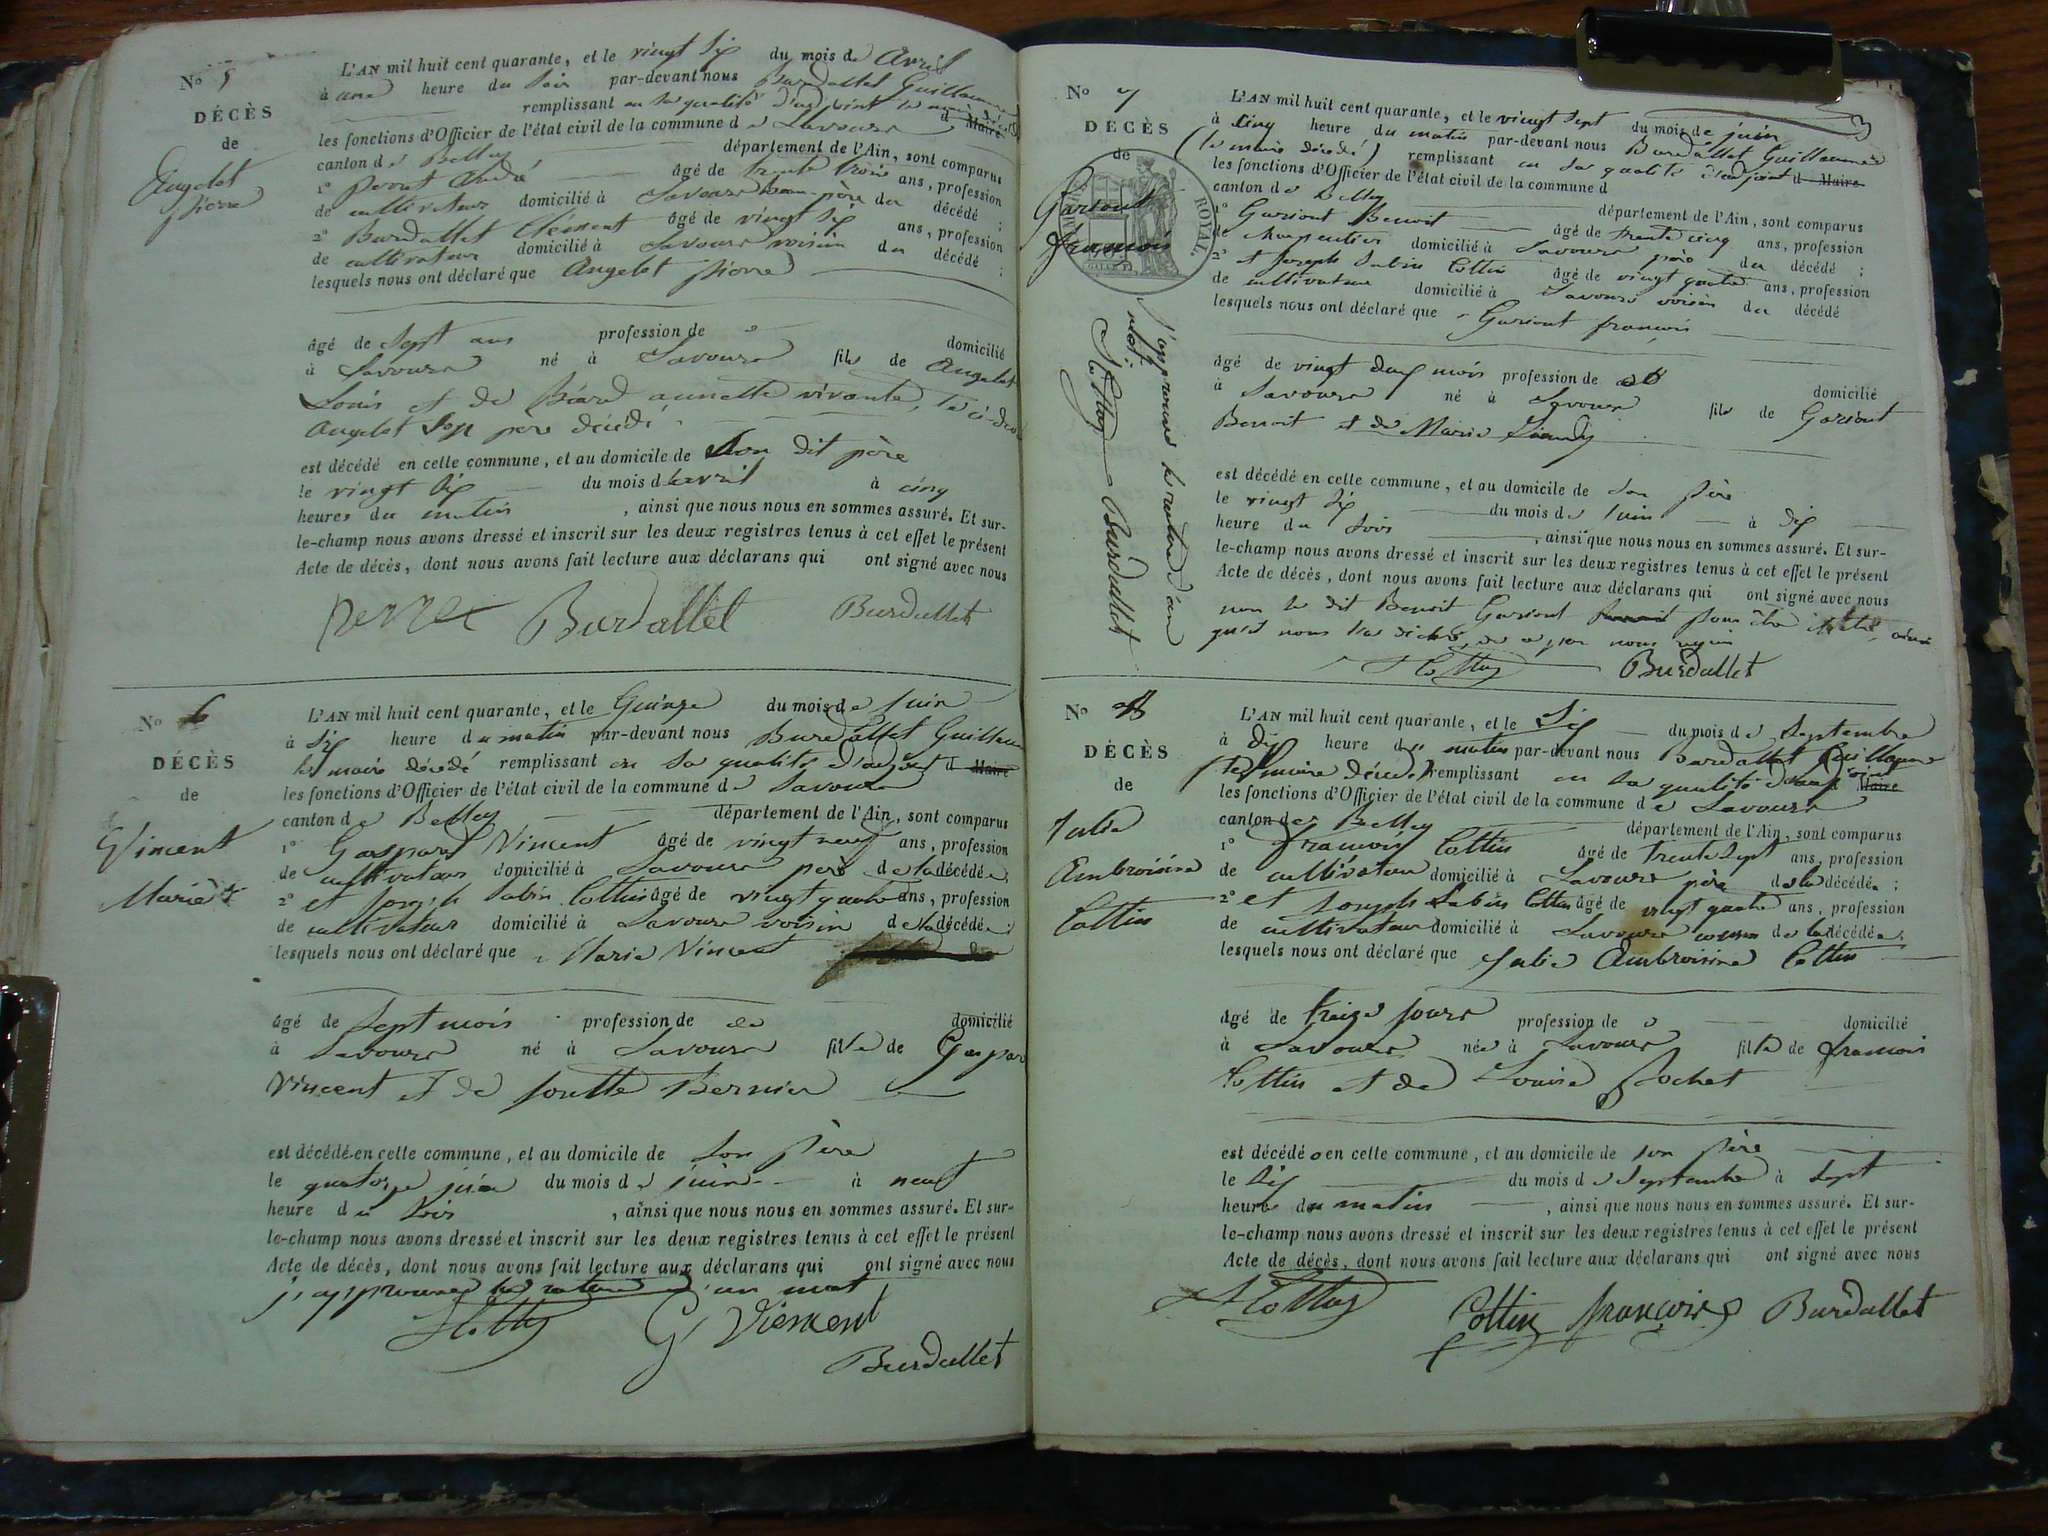 No 5
DÉCÈS
de
Angelet
pierre
L'AN mil huit cent quarante, et le vingt six du mois de Avril
à une heure du soir par-devant nous Burdallet Guillaume
remplissant en sa qualité d'adjoint le maire décédé d Maire
les fonctions d'Officier de l'état civil de la commune de Lavours
canton de Belley département de l'Ain, sont comparus
1° Perret André âgé de trente trois ans, profession
de cultivateur domicilié à Lavours beau-père du décédé ;
2° Burdallet Clément âgé de vingt six ans, profession
de cultivateur domicilié à Lavours voisin du décédé ;
lesquels nous ont déclaré que Angelet pierre
âgé de sept ans profession de domicilié
à Lavours né à Lavours fils de Angelet
Louis et de annette vivante, le ci-devant
Angelet son pere décédé
est décédé en cette commune, et au domicile de son dit père
le vingt six du mois d'avril à cinq
heures du matin , ainsi que nous nous en sommes assuré. Et sur-
le-champ nous avons dressé et inscrit sur les deux registres tenus à cet effet le présent
Acte de décès, dont nous avons fait lecture aux déclarans qui ont signé avec nous
perret Burdallet Burdallet
No 6
DÉCÈS
de
Vincent
Marie
L'AN mil huit cent quarante, et le Quinze du mois de Juin
à six heure du matin par-devant nous Burdallet Guillaume
le maire décédé remplissant en sa qualité d'adjoint d Maire
les fonctions d'Officier de l'état civil de la commune de Lavours
canton de Belley département de l'Ain, sont comparus
1° Gaspard Vincent âgé de vingt neuf ans, profession
de cultivateur domicilié à Lavours père de la décédée ;
2° et Joseph Sabin Cottin âgé de vingt quatre ans, profession
de cultivateur domicilié à Lavours voisin de la décédée ;
lesquels nous ont déclaré que Marie Vincent
âgé de sept mois profession de domicilié
à Lavours né à Lavours fille de Gaspard
Vincent et de Josette Bernier
est décédé en cette commune, et au domicile de son père
le quatorze juin du mois de juin à neuf
heure du soir , ainsi que nous nous en sommes assuré. Et sur-
le-champ nous avons dressé et inscrit sur les deux registres tenus à cet effet le présent
Acte de décès, dont nous avons fait lecture aux déclarans qui ont signé avec nous
j'approuve la rature d'un mot
S Cottin G Viencent
Burdallet
No 7
DÉCÈS
de
Gariout
françois
ROYAL.
J'approuve la rature d'un
mot.
S Cottin Burdallet
L'AN mil huit cent quarante, et le vingt sept du mois de juin
à cinq heure du matin par-devant nous Burdallet Guillaume
(le maire décédé) remplissant en sa qualité d'adjoint d Maire
les fonctions d'Officier de l'état civil de la commune d
canton de Belley département de l'Ain, sont comparus
1° Gariout Benoit âgé de trente cinq ans, profession
de charpentier domicilié à Lavours père du décédé ;
2° et Joseph Sabin Cottin âgé de vingt quatre ans, profession
de cultivateur domicilié à Lavours voisin du décédé
lesquels nous ont déclaré que Gariout françois
âgé de vingt deux mois profession de domicilié
à Lavours né à Lavours fils de Gariout
Benoit et de Marie
est décédé en cette commune, et au domicile de son père
le vingt six du mois de Juin à dix
heure du soir , ainsi que nous nous en sommes assuré. Et sur-
le-champ nous avons dressé et inscrit sur les deux registres tenus à cet effet le présent
Acte de décès, dont nous avons fait lecture aux déclarans qui ont signé avec nous
non le dit Benoit Gariout pour être ainsi
qu'il nous l'a déclaré, de ce par nous requis
S Cottin Burdallet
No 8
DÉCÈS
de
Julie
Ambroisine
Cottin
L'AN mil huit cent quarante, et le Six du mois de Septembre
à dix heure du matin par-devant nous Burdallet Guillaume
(le maire décédé) remplissant en sa qualité d'adjoint Maire
les fonctions d'Officier de l'état civil de la commune de Lavours
canton de Belley département de l'Ain, sont comparus
1° françois Cottin âgé de trente sept ans, profession
de cultivateur domicilié à Lavours père de la décédée ;
2° et Joseph Sabin Cottin âgé de vingt quatre ans, profession
de cultivateur domicilié à Lavours cousin de la décédée ;
lesquels nous ont déclaré que Julie Ambroisine Cottin
âgé de treize jours profession de domicilié
à Lavours née à Lavours fille de françois
Cottin et de Louise Rochet
est décédée en cette commune, et au domicile de son père
le six du mois de Septembre à sept
heure du matin , ainsi que nous nous en sommes assuré. Et sur-
le-champ nous avons dressé et inscrit sur les deux registres tenus à cet effet le présent
Acte de décès, dont nous avons fait lecture aux déclarans qui ont signé avec nous
S Cottin Cottin françois Burdallet